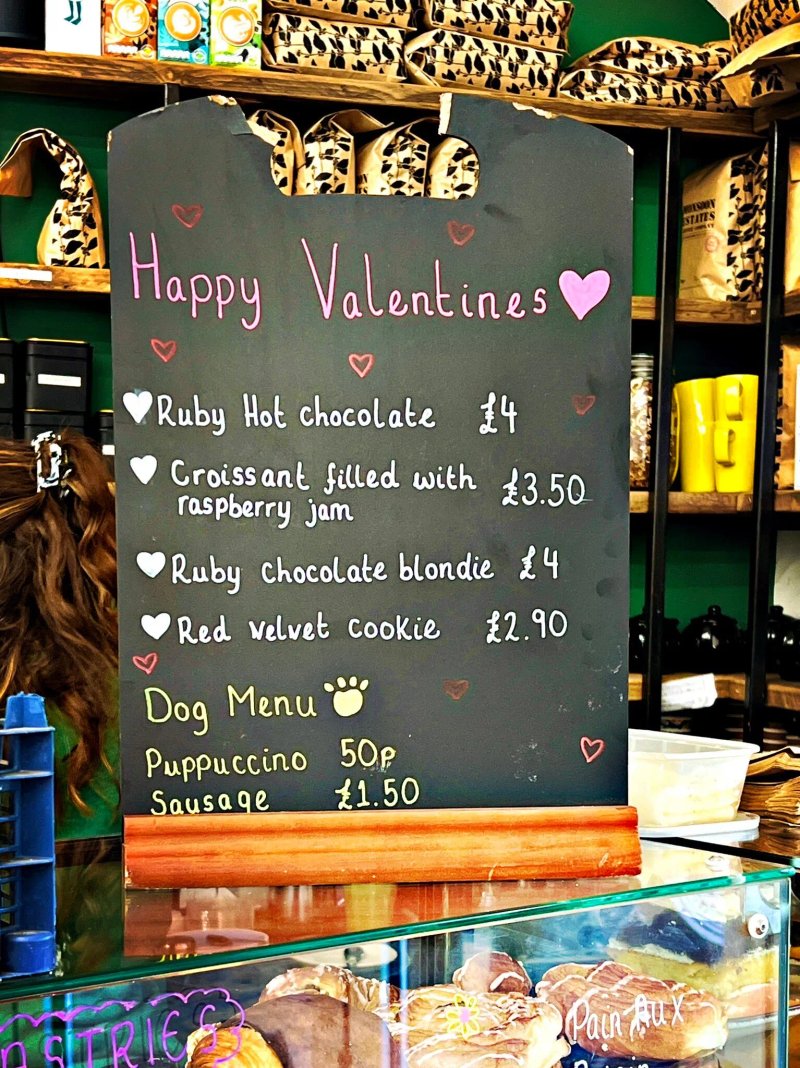 Happy Valentines
Ruby Hot chocolate £4
Croissant filled with £3.50
raspberry jam
Ruby chocolate blondie £4
Red velvet cookie £2.90
Dog Menu
Puppuccino 50p
Sausage £1.50
MONSOON
ESTATES
ASTRIES
Pain Aux
Raisin